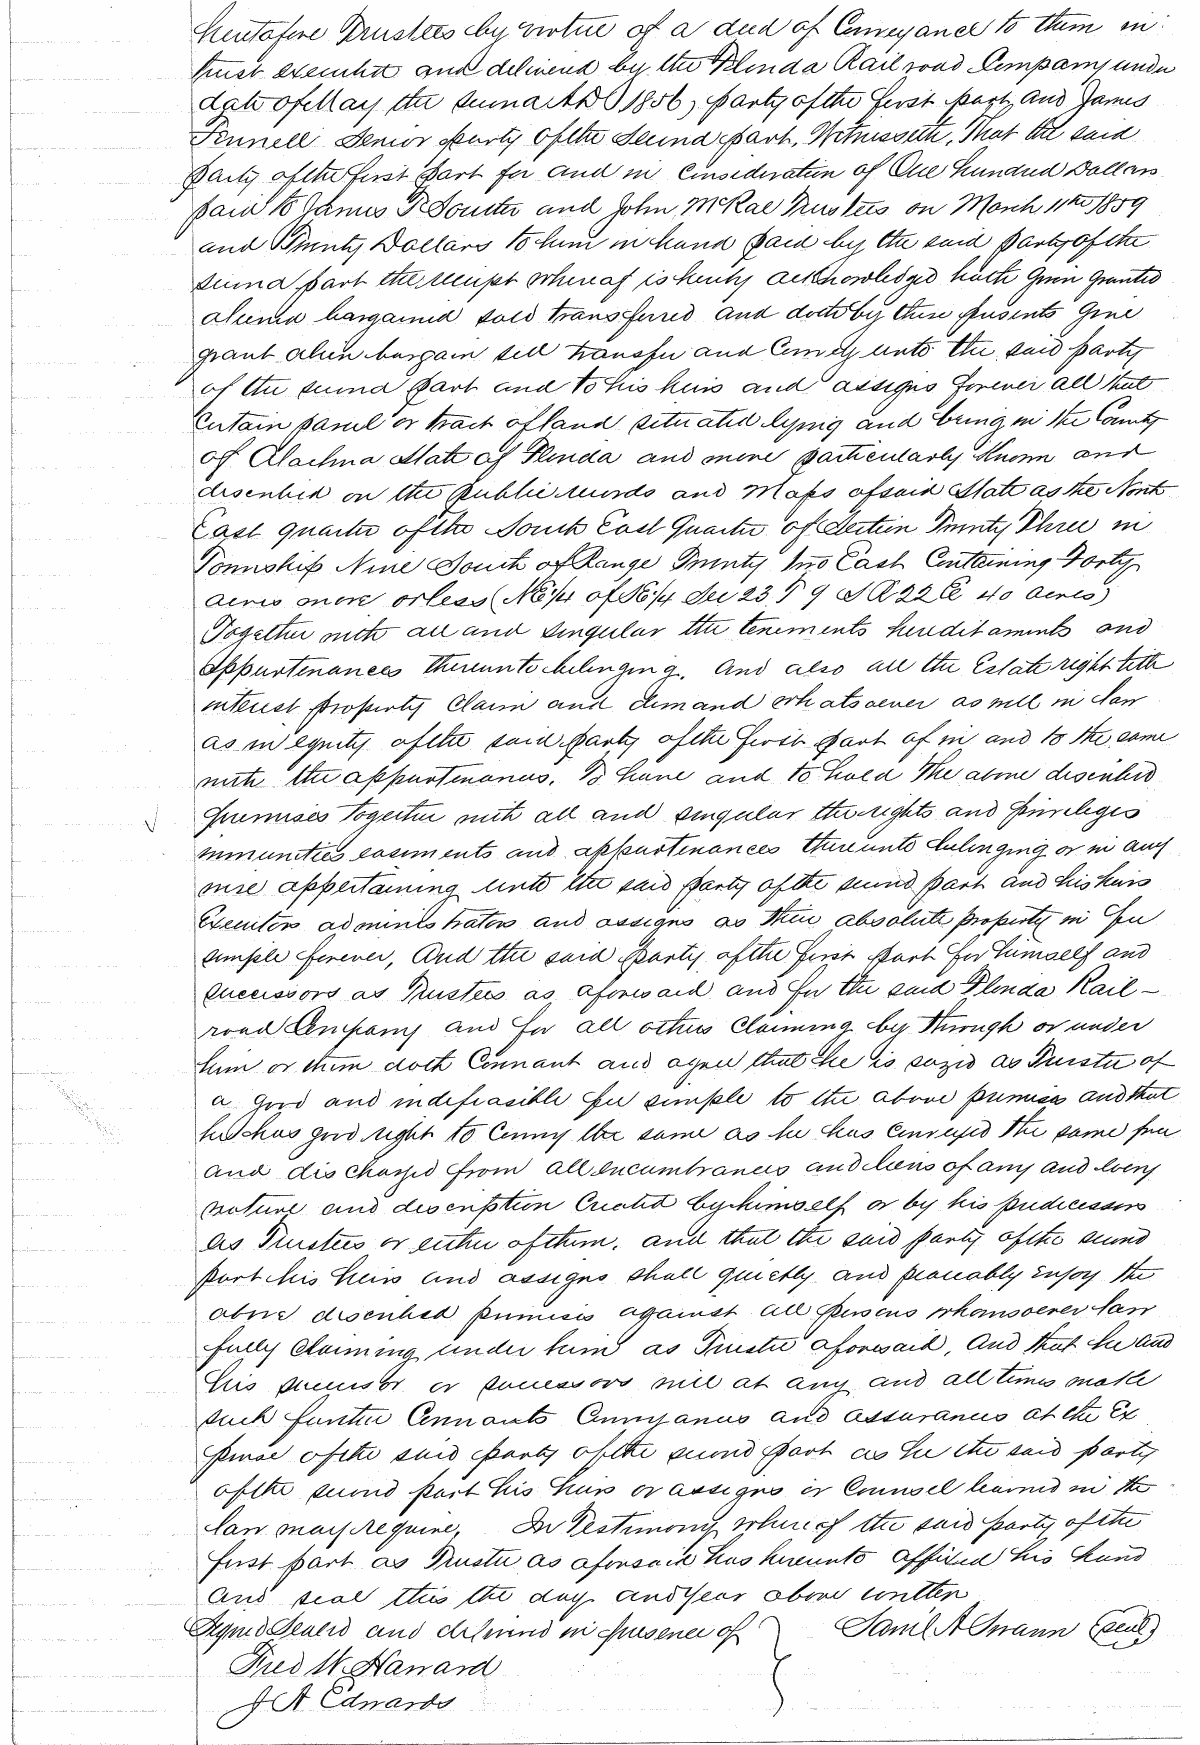 heretofore Trustees by virtue of a deed of Conveyance to them in
trust executed and delivered by the Florida Rail road Company under
date of May the second A D 1856, party of the first part and James
Pennell Senior party of the Second part, Witnesseth, That the said
party of the first part for and in Consideration of One hundred Dollars
paid to James T Soutter and John McRae Trustees on March 11th 1859
and Twenty Dollars to him in hand paid by the said party of the
second part the receipt whereof is hereby acknowledged hath given granted
aliened bargained sold transferred and doth by these presents give
grant alien bargain sell transfer and Convey unto the said party
of the second part and to his heirs and assigns forever all that
Certain parcel or tract of land situated lying and being in the County
of Alachua State of Florida and more particularly Known and
described on the public records and Maps of said State as the North
East quarter of the South East Quarter of Section Twenty Three in
Township Nine South of Range Twenty Two East Containing Forty
acres more or less (NE1/4 of SE1/4 Sec 23 T 9 S R 22 E 40 acres)
Together with all and singular the tenements hereditaments and
appurtenances thereunto belonging. And also all the Estate right title
interest property Claim and demand whatsoever as well in law
as in equity of the said party of the first part of in and to the same
with the appurtenances. To have and to hold the above described
premises together with all and singular the rights and privileges
immunities easments and appurtenances thereunto belonging or in any
wise appertaining unto the said party of the second part and his heirs
Executors administrators and assigns as their absolute property in fee
simple forever, And the said party of the first part for himself and
successors as Trustees as aforesaid and for the said Florida Rail-
road Company and for all others Claiming by through or under
him or them doth Covenant and agree that he is sezed as Trustee of
a good and indefeasible fee simple to the above premises and that
he has good right to Convey the same as he has Conveyed the same free
and discharged from all encumbrances and liens of any and every
nature and description Created by himself or by his predecessors
as Trustees or either of them. and that the said party of the second
part his heirs and assigns shall quietly and peaceably Enjoy the
above described premises against all persons whomsoever law
fully Claiming under him as Trustee aforesaid, And that he and
his successor or successors will at any and all times make
such further Covenants Conveyances and assurances at the Ex
pense of the said party of the second part as he the said party
of the second part his heirs or assigns or Counsel learned in the
law may require. In Testimony whereof the said party of the
first part as Trustee as aforsaid has hereunto affixed his hand
and seal this the day and year above written
Signed Sealed and delivered in presence of } Saml A Swann (seal)
Fred W. Hanard
J A Edwards